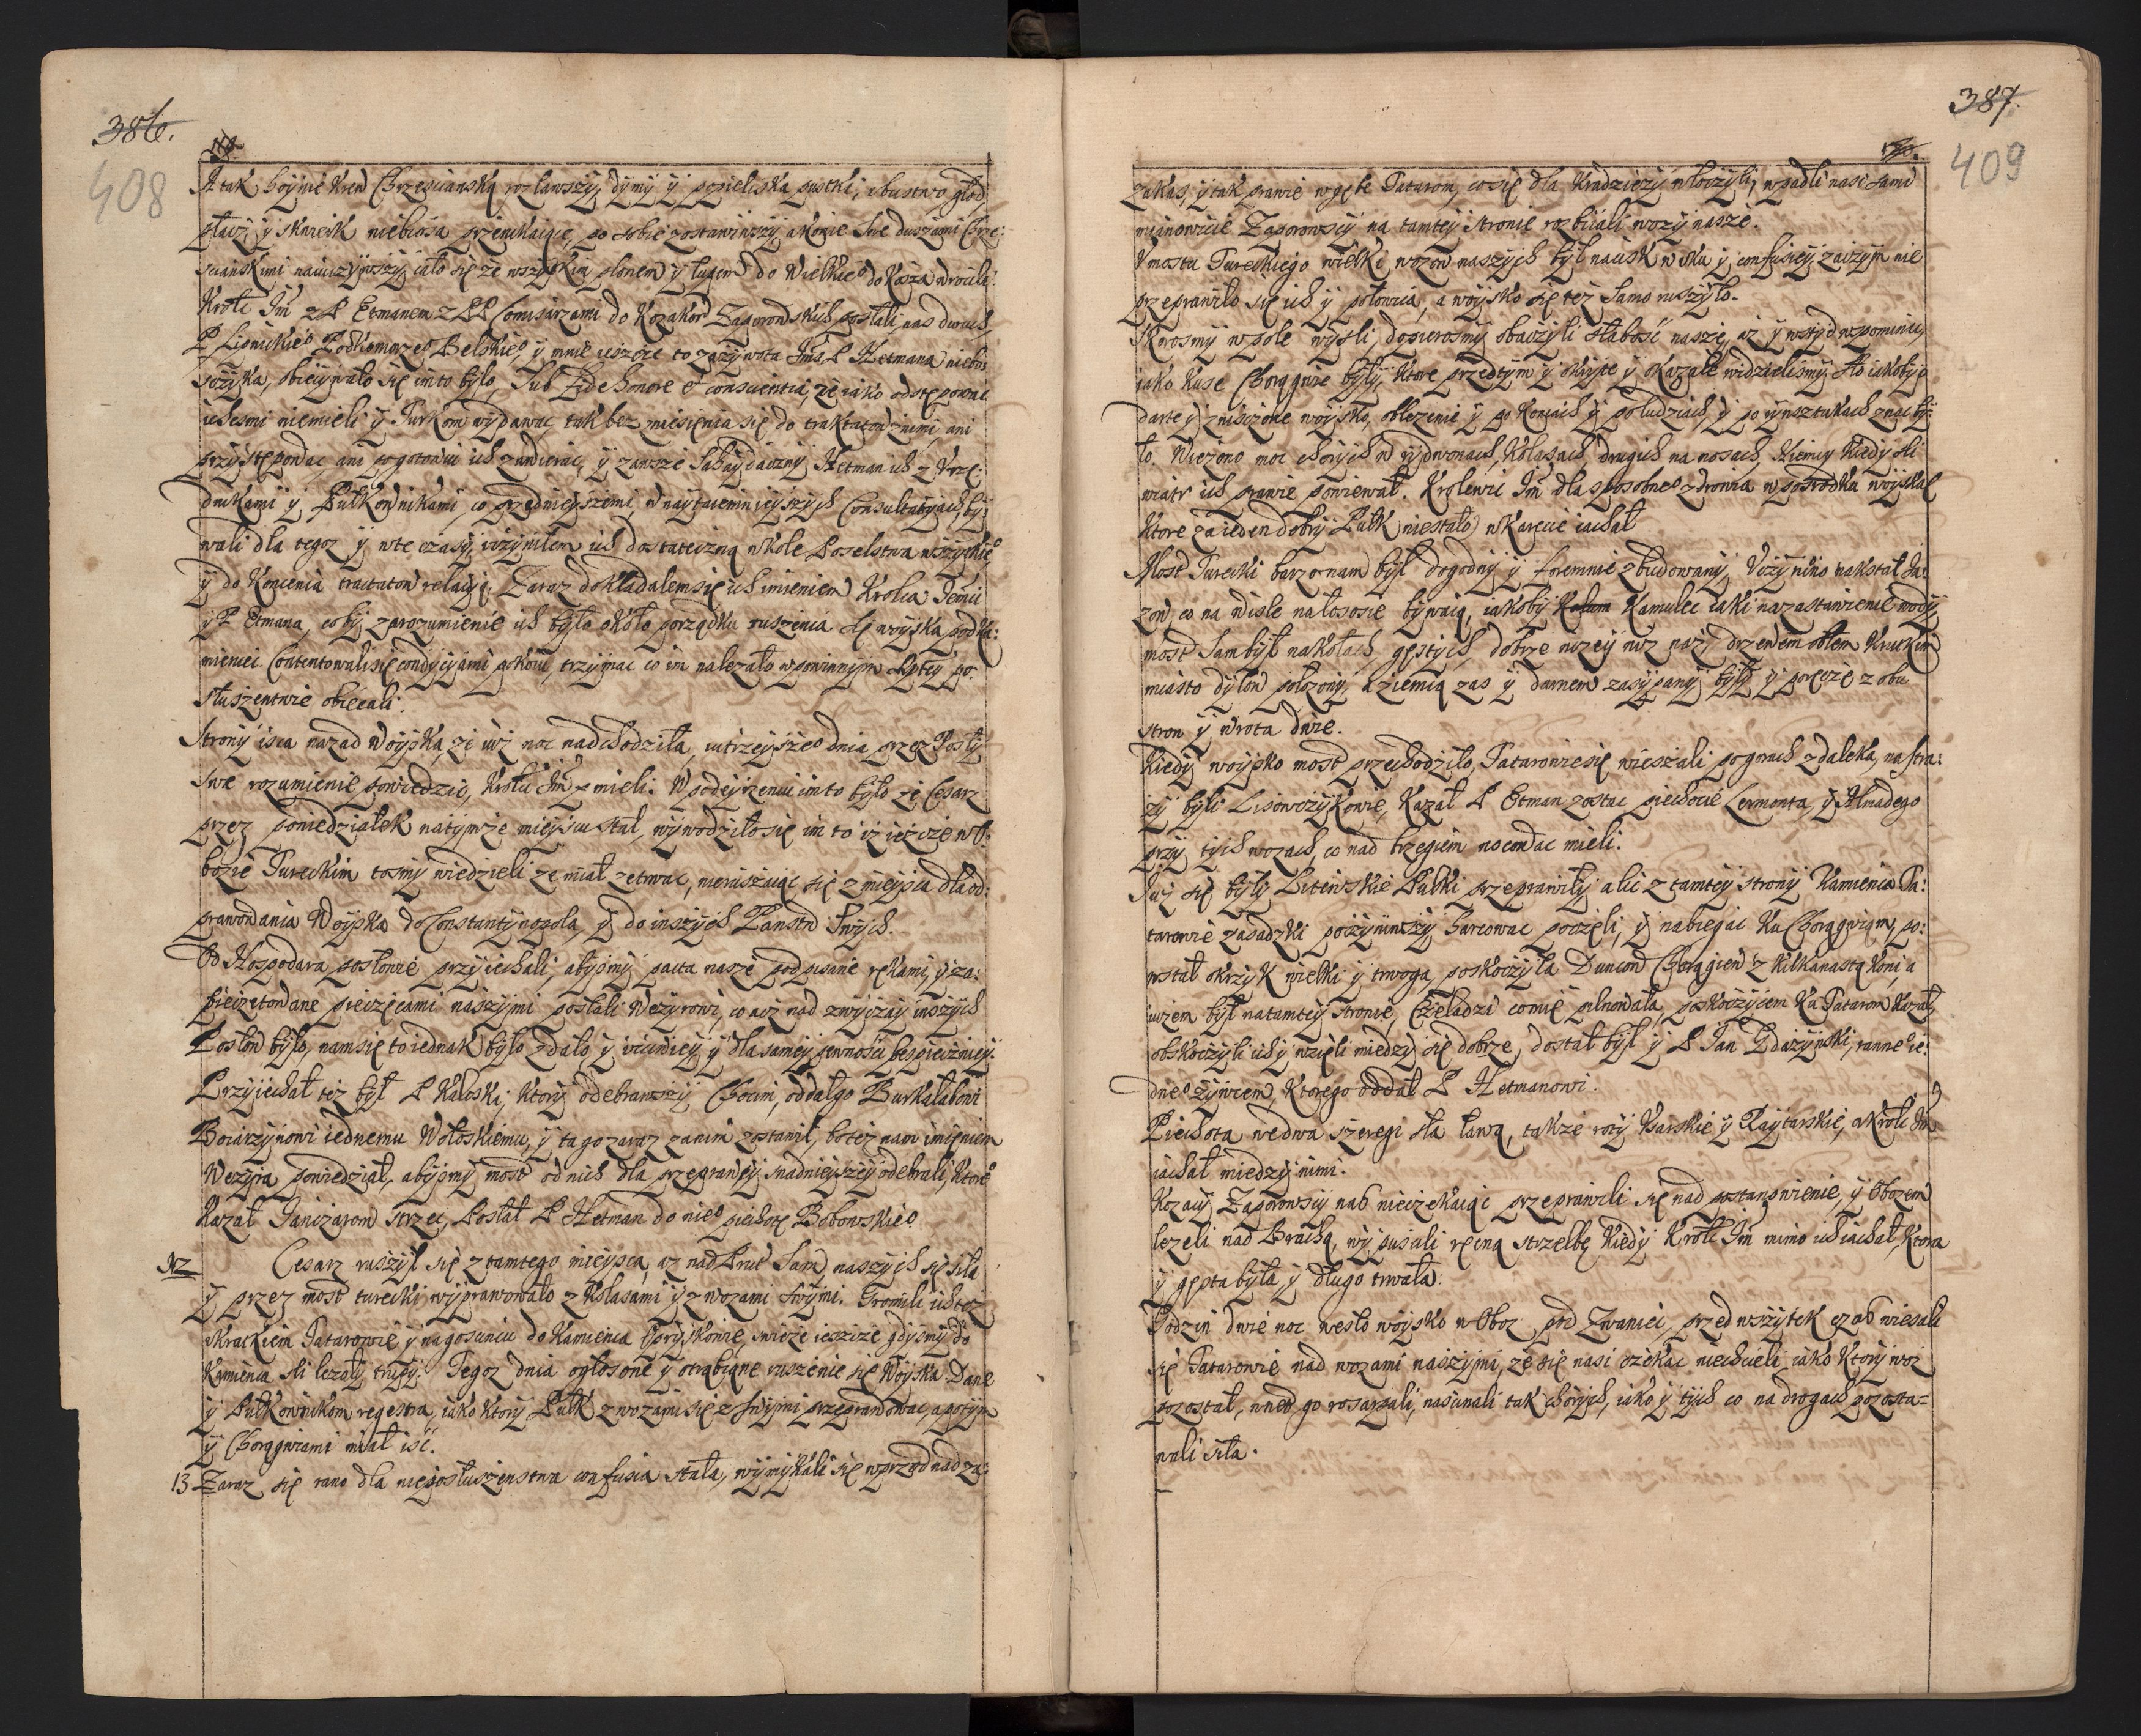 386.
408
A tak hoynie krew Chrzesciańską rozlawszy, dymy y popieliska pustki, ubustwo głod
płacz, y skwierk niebiosa przenikaiące, po sobie zostawiwszy, a konie swe duszami Chrze:
sciańskimi nauczywszy, iało się ze wszytkim plonem y ługem do Wielkieo do Kosza wrocili.
Krolc Jm z P Etmanem z PP Comisarzami do Kozakow Zaporowskich posłali nas dwuch
P Lipnickieo Podkomorzeo Belskieo, y mnie ieszcze to za zywota Jmci P Hetmana niebos
szczyka, obiecywało się im to było, sub fide honore et conscientia, że iako odstępowac
ichesmi niemieli y Turkom wydawac, tak bez zniesienia się do traktatow znimi, ani
przystępowac ani pogotowiu ich zawierac, y zawsze Sahaydaczny Hetman ich z Urzę:
dnikami y Pułkownikami, co przednieyszemi, w naytaiemnieyszych Consultacyach by:
wali dla tegoz y wte czasy, uczyniłem ich dostateczną w Kole Poselstwa wszytkieo
y do Konienia tractatow relacyą. Zaraz dokładałem się ich imieniem Krolca Jemu
y P Etmana, coby zarozumienie ich było około porządku ruszenia się woyska pod Ka:
mieniec. Contentowali się condycyami pokoiu, trzymac co im należało wpowinnym Rptey po:
słuszenstwie obiecali.
Strony isca nazad Woyska, że uz noc nadchodziła, iutrzeyszeo dnia przez Posły
swe rozumienie powiedzic, Krolci Jm mieli. W podeyrzeniu im to było że Cesarz
przez poniedziałek natymże mieyscu stał, wywodziło się im to iz ieszcze w O:
bozie Tureckim tosmy wiedzieli że miał zetrwac, nieruszaiąc się z mieysca dla od:
prawowania Woyska do Constantynopola, y do inszych Panstw swych.
Od Hospodara posłowie przyiechali, abysmy pacta nasze podpisane rękami, y za:
pieczętowane pieczęciami naszymi posłali Wezyrowi, co acz nad zwyczay inszych
Posłow było, nam się to iednak było zdało y uczciwiey y dla samey pewnosci bespieczniey.
Przyiechał też był P Kaleski, ktory odebrawszy Chocim, oddał go Burkałabowi
Boiarzynowi iednemu Wołoskiemu, y ta go zaraz zanim zostawił, bo też nam imieniem
Wezyra powiedział, abysmy most od nich dla przeprawy snadnieyszey odebrali, ktoreo
kazał Janczarom strzec, Posłał P Hetman do nieo piechotę Bobowskieo
Nz Cesarz ruszył się z tamtego mieysca, az nad Prut Sam naszych się siła
y przez most turecki wyprawowało z kolasami y z wozami swymi. Gromili ich też
ukradkiem Tatarowie y nagosciniu do Kamienca, swieże ieszcze gdysmy do
Kamienca sli lezały trupy. Tegoż dnia ogłoszone y otrąbione ruszenie się Woyska Dane
y Pułkownikom regestra, iako ktory Pułk z wozami się z swymi przeprawowac, a potym
y Chorągwiami miał isc.
13 Zaraz się rano dla nieposłuszenstwa confusia stała, wymykali się wprzod nad za:
387.
409
zakaz, y tak prawie wgębę Tatarom, co się dla kradzieży włoczyli, wpadli nasi sami
mianowicie Zaporowscy na tamtey stronie rozbiiali wozy nasze.
U mostu Tureckiego wielki wozow naszych był nacisk wsku y confusiey, zaczym nie
przeprawiło się ich y połowica, a woysko się też samo ruszyło.
Skorosmy wpole wyszli, dopierosmy obaczyli słabosc naszę, aż y wstyd wspominac,
iako kuse Chorągwie były, ktore przedtym y okryte y okazałe widzielismy. Sło iakoby o
darte y zniszczone woysko, oblezenie y po koniach y po ludziach, y po rynsztukach znac by:
ło. Wieziono moc chorych w rydwanach, kolasach, drugich na nosach, Niemcy kiedy sli
wiatr ich prawie powiewał. Krolewic Jm dla sposobneo zdrowia w posrodku woyska
ktore za ieden dobry Pułk niestało w karecie iachał
Most Turecki barzo nam był dogodny y foremnie zbudowany, Uczyniono nakształ Ja:
zow, co na Wisle na łososie bywaią, iakoby Kamulec iaki na zastawienie wody
most sam był na kołach, gęstych, dobrze wzey niz nasz, drzewem obłem krutkim
miasto dylow położony, a ziemią zas y darnem zasypany, były y poręcze z obu
stron y wrota dwie.
Kiedy woysko most przechodziło, Tatarowie się wieszali po gorach zdaleka, na stra:
ży byli Lisowczykowie, kazał P Etman zostac piechocie Lermonta, y Almadego
przy tych wozach, co nad brzegiem nocowac mieli.
Juz się były Litewskie Pułki przeprawiły, alic z tamtey strony Kamienca Ta:
tarowie zasadzki poczyniwszy harcowac poczęli, y nabiegac ku Chorągwiam, po:
wstał okrzyk wielki y trwoga, poskoczyła Duncow Chorągiew z kilkanastą koni a
iużem był natamtey stronie, Czeladzi co mię pilnowała, poskoczycem ku Tatarom kazał,
obskoczyli ich y wzięli miedzy się dobrze, dostał był y P Jan Zdazynski, ranneo ie:
dneo zywcem, ktorego oddał P Hetmanowi.
Piechota wedwa szeregi sła ławą, także roty Usarskie y Raytarskie, a Krolc Jm
iachał miedzy nimi.
Kozacy Zaporowscy nas nieczekaiąc przeprawili się nad postanowienie, y Obozem
lezeli nad Brachą, wypuscili ręczną strzelbę kiedy Krolc Jm mimo ich iachał, ktora
y gęsta była y długo trwała.
Godzin dwie noc weszło woysko w Oboz pod Zwaniec, przed wszytek czas wieszali
się Tatarowie nad wozami naszymi, że się nasi czekac niechcieli, iako ktory woz
pozostał, wned go rosarpali, nascinali tak chorych, iako y tych co na drogach pozosta=
wali siła.